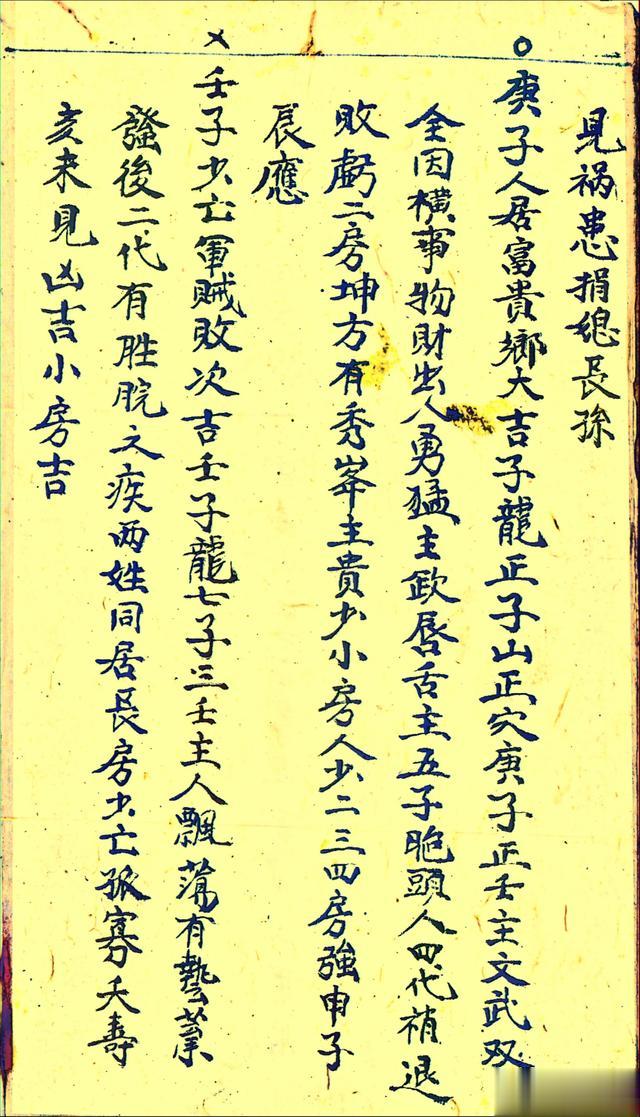 見祸患捐媳長孫
○庚子人居富貴鄉大吉子龍正子山正穴庚子正壬主文武双
全因橫事物財出人勇猛主飲唇舌主五子胞頭人四代稍退
敗虧二房坤方有秀峯主貴少小房人少二三四房強申子
辰應
×壬子少亡軍賊敗次吉壬子龍七子三壬主人飄蕩有藝業
發後二代有胜脘之疾两姓同居長房少亡孤寡夭壽
亥未見凶吉小房吉